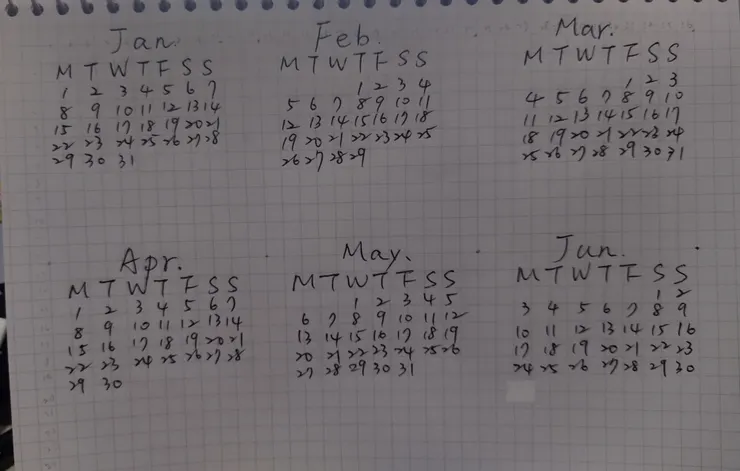 Jan.
M T W T F S S
1 2 3 4 5 6 7
8 9 10 11 12 13 14
15 16 17 18 19 20 21
22 23 24 25 26 27 28
29 30 31
Feb.
M T W T F S S
1 2 3 4
5 6 7 8 9 10 11
12 13 14 15 16 17 18
19 20 21 22 23 24 25
26 27 28 29
Mar.
M T W T F S S
1 2 3
4 5 6 7 8 9 10
11 12 13 14 15 16 17
18 19 20 21 22 23 24
25 26 27 28 29 30 31
Apr.
M T W T F S S
1 2 3 4 5 6 7
8 9 10 11 12 13 14
15 16 17 18 19 20 21
22 23 24 25 26 27 28
29 30
May.
M T W T F S S
1 2 3 4 5
6 7 8 9 10 11 12
13 14 15 16 17 18 19
20 21 22 23 24 25 26
27 28 29 30 31
Jun.
M T W T F S S
1 2
3 4 5 6 7 8 9
10 11 12 13 14 15 16
17 18 19 20 21 22 23
24 25 26 27 28 29 30